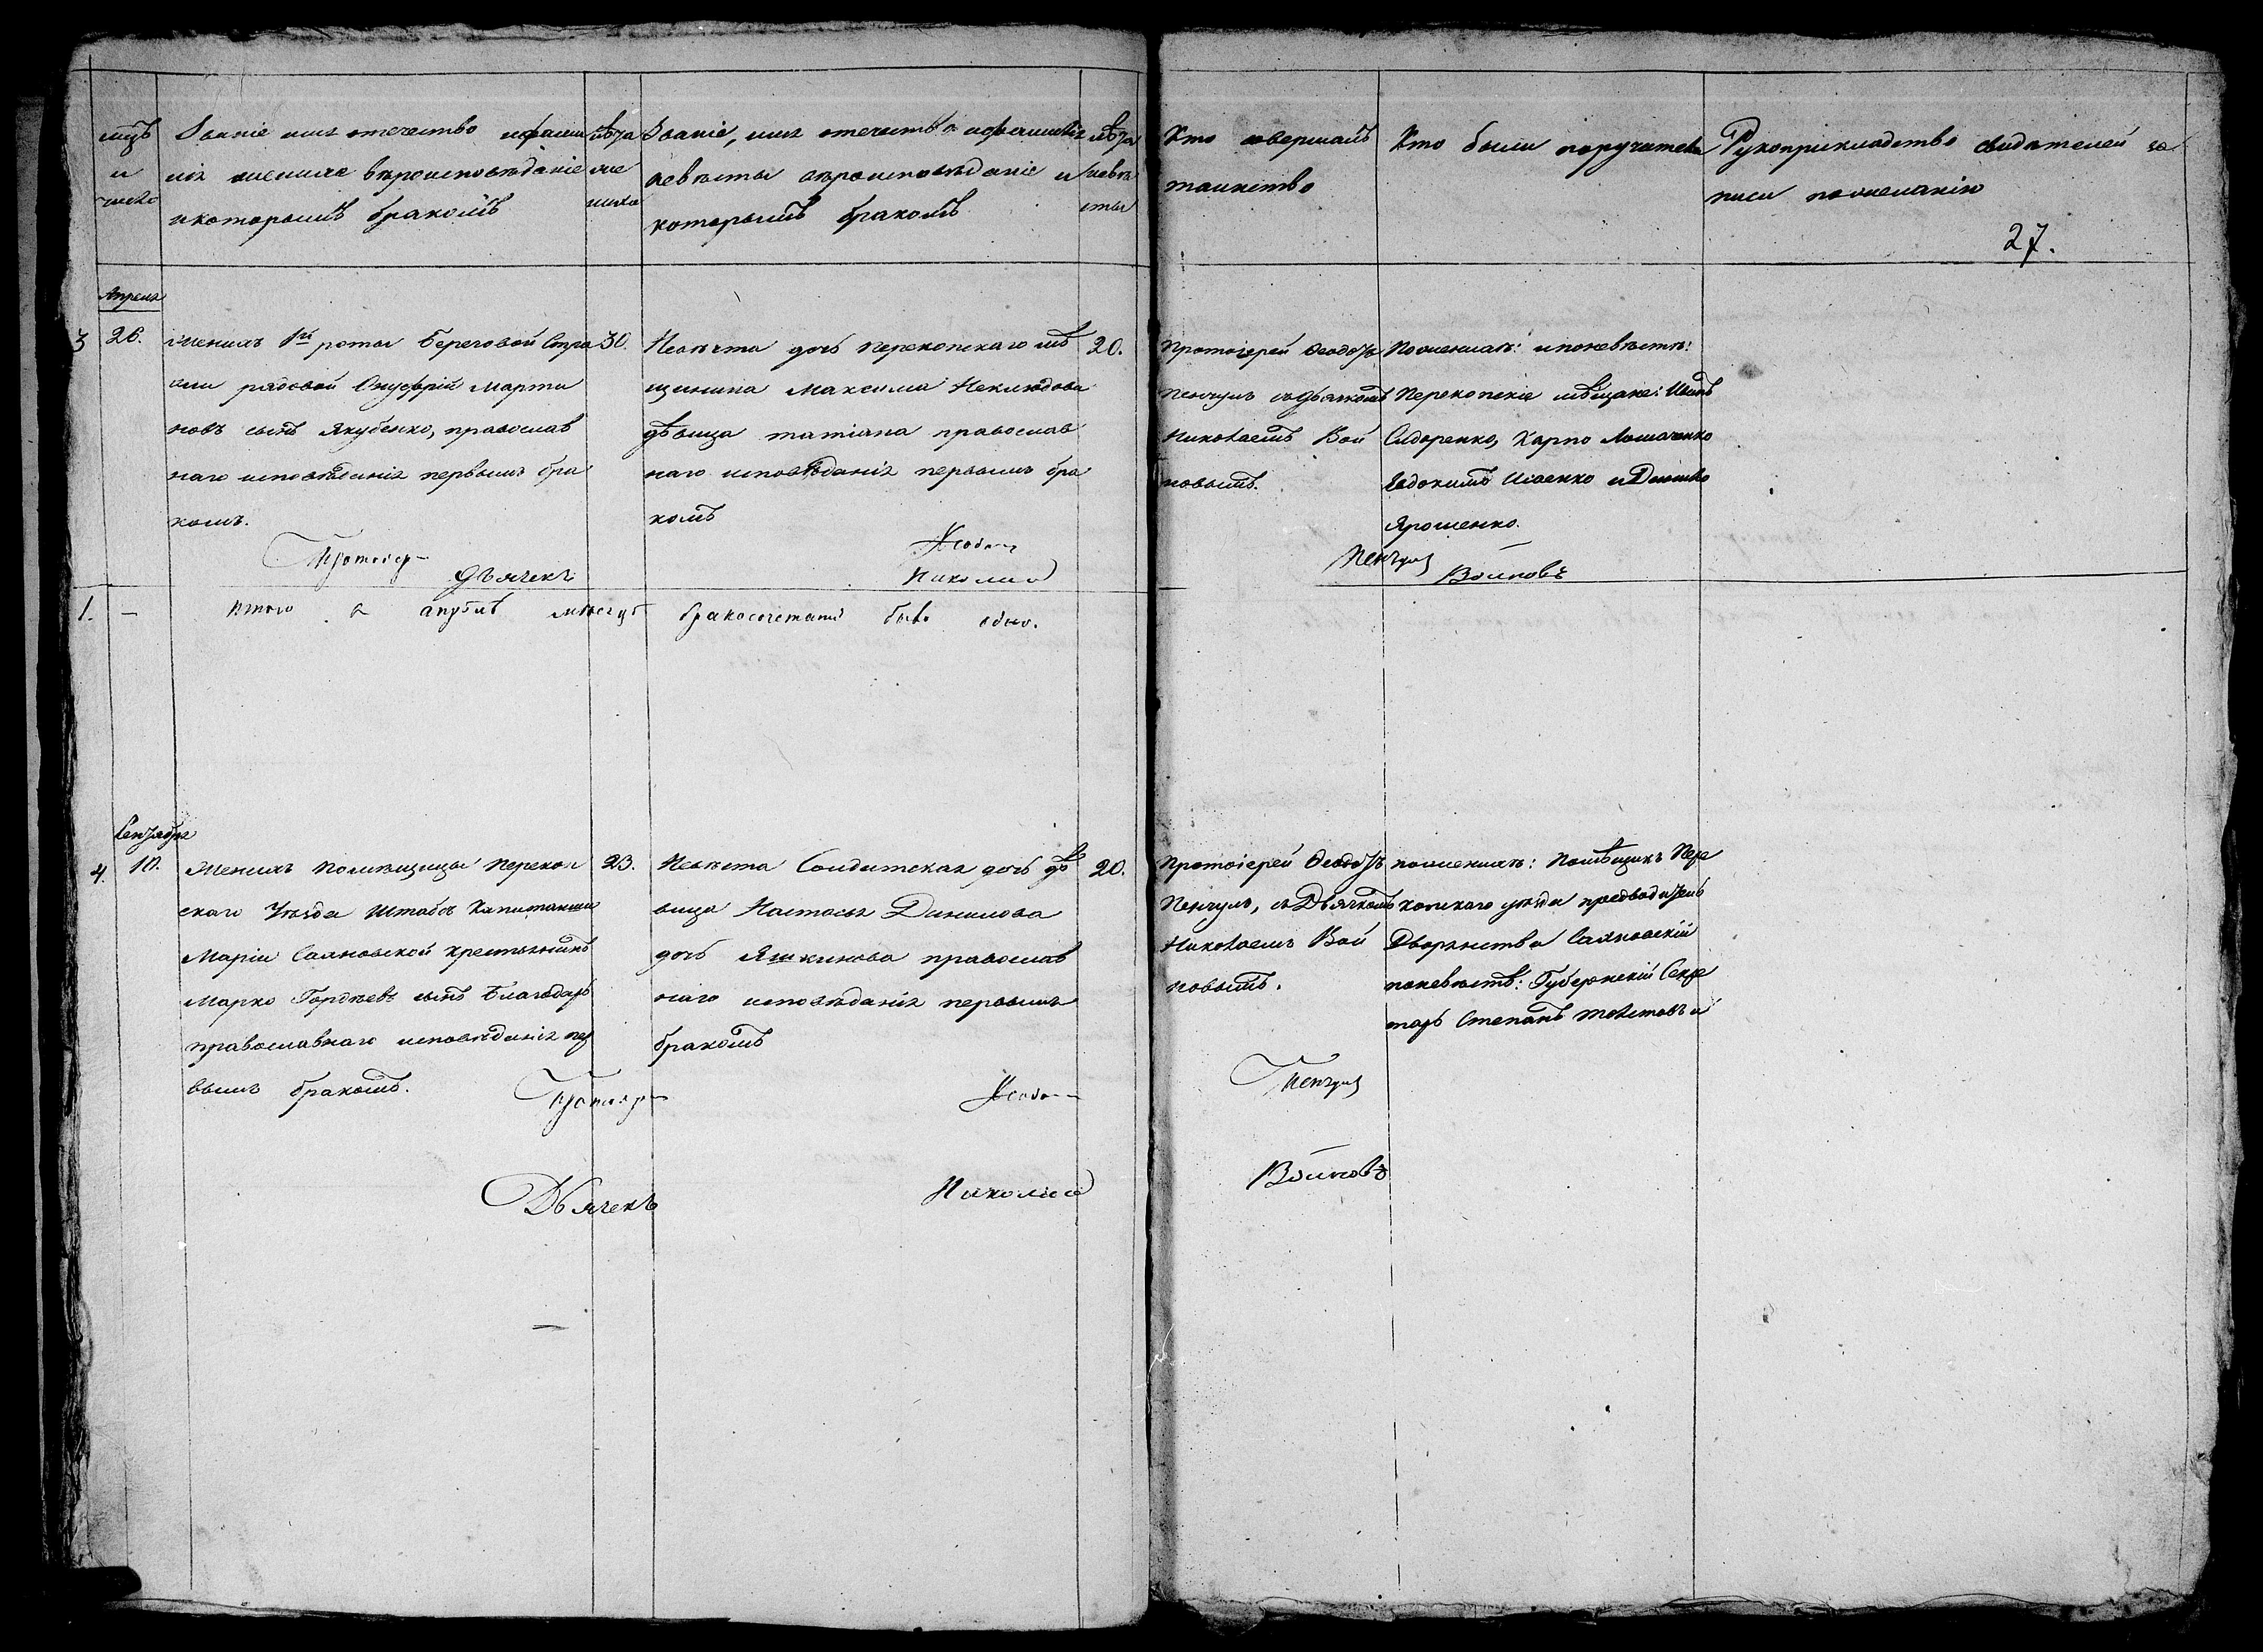 мцъ
и
число
Званіе имя отечество и фамилія жениха вѣроисповѣданіе
и которымъ бракомъ
лѣта
же
ниха
Званіе, имя отечество и фамилія
невѣсты вѣроисповѣданіе и
которымъ бракомъ
лѣта
невѣ
сты
Кто совершалъ
таинство
Кто были поручатели
Рукоприкладство свидѣтелей за
писи по желанію
27.
Апреля
3
26.
Женихъ 1й роты Береговой Стра
жи рядовой Онуфрій Марти
новъ сынъ Якубенко, православ
наго исповѣданія первымъ бра
комъ.
30.
Невѣста дочь перекопскаго мѣ
щанина Максима Неклюдова
дѣвица татіана православ
наго исповѣданія первымъ бра
комъ
20.
Протоіерей Ѳеодоръ
Пенчулъ съ дьячкомъ
Николаемъ Вои
новымъ.
По женихѣ: и по невѣстѣ:
Перекопскіе мѣщане: Иванъ
Сидоренко, Карпо
Евдокимъ Исаенко и Данило
Ярошенко.
Протоіер
Ѳеодоръ
Пенчулъ
Дьячекъ
Николай
Воиновъ
1.
—
Итого въ апрѣлѣ месяцѣ бракосочетаній было одно.
Сентября
4.
17.
Женихъ Помѣщицы Перекоп
скаго Уѣзда Штабсъ Капитанши
Маріи Саяновской крестьянинъ
Марко Гордѣевъ сынъ Благодарь
православнаго исповѣданія пер
вымъ бракомъ.
23.
Невѣста Солдатская дочь дѣ
вица Настасья Данилова
дочь Яшкинова православ
наго исповѣданія первымъ
бракомъ
20.
Протоіерей Ѳеодоръ
Пенчулъ, съ Дьячкомъ
Николаемъ Вои
новымъ.
по женихѣ: Помѣщикъ Пере
копскаго уѣзда предводитель
Дворянства Саяновскій
по невѣстѣ: Губернскій Секре
тарь Степанъ
Протоіер
Ѳеодоръ
Пенчулъ
Дьячекъ
Николай
Воиновъ